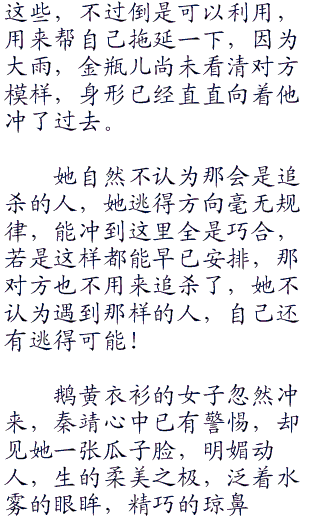 这些，不过倒是可以利用，
用来帮自己拖延一下，因为
大雨，金瓶儿尚未看清对方
模样，身形已经直直向着他
冲了过去。
她自然不认为那会是追
杀的人，她逃得方向毫无规
律，能冲到这里全是巧合，
若是这样都能早已安排，那
对方也不用来追杀了，她不
认为遇到那样的人，自己还
有逃得可能！
鹅黄衣衫的女子忽然冲
来，秦靖心中已有警惕，却
见她一张瓜子脸，明媚动
人，生的柔美之极，泛着水
雾的眼眸，精巧的琼鼻